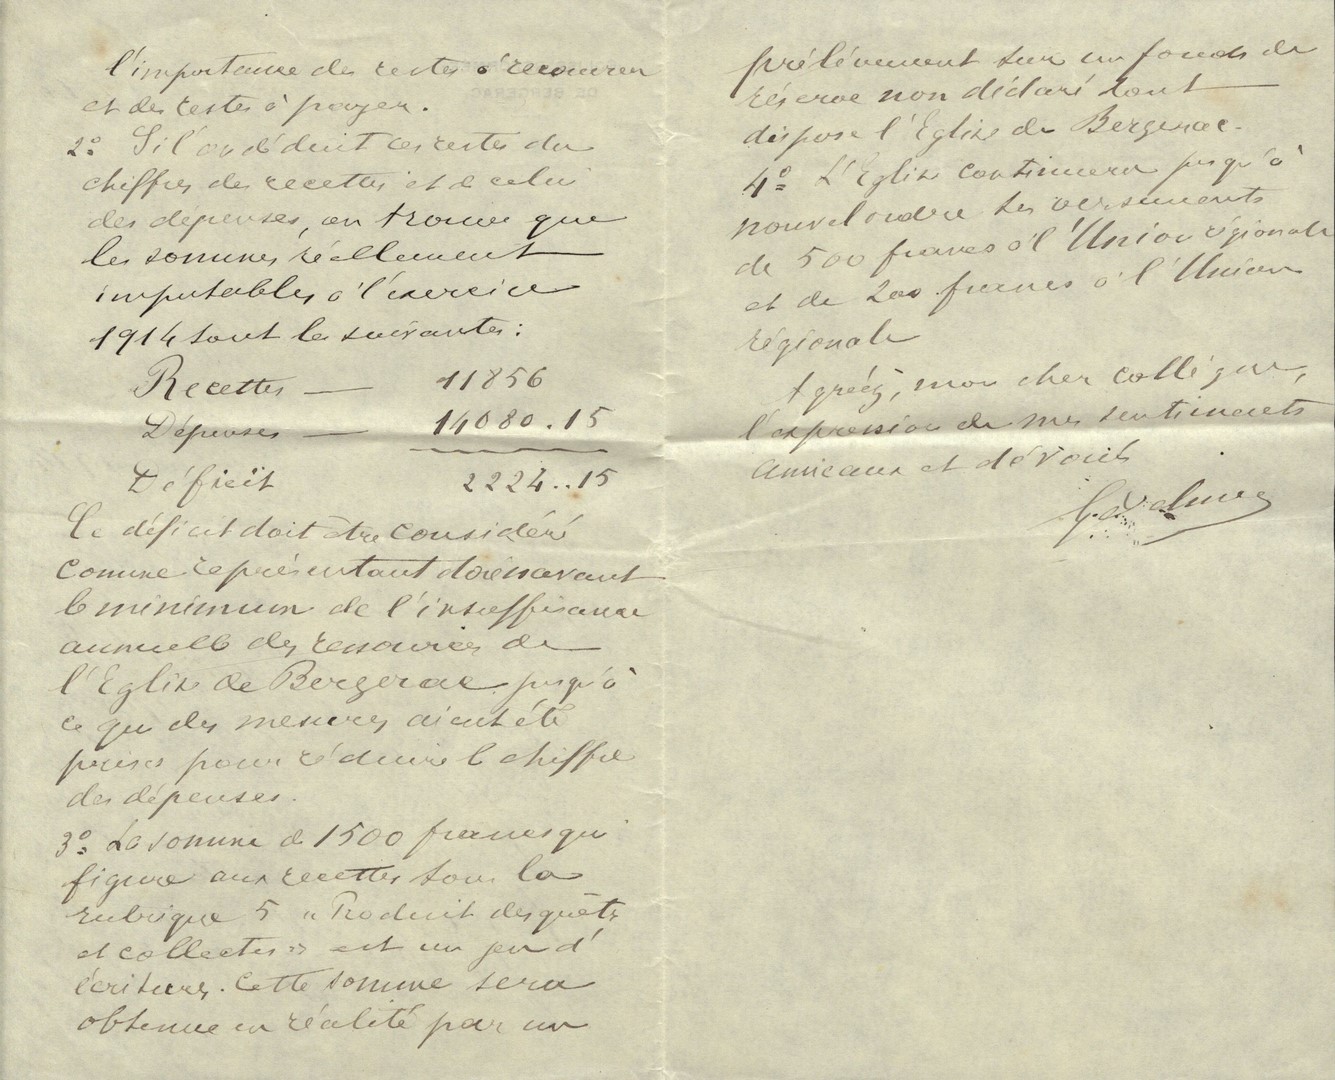 l'importance des restes à recouvrer
et des restes à payer.
2º Si l'on déduit ces restes du
chiffre des recettes et de celui
des dépenses, on trouve que
les sommes réellement
imputables à l'exercice
1914 sont les suivantes :
Recettes — 11856
Dépenses — 14080.15
Déficit 2224..15
Ce déficit doit être considéré
comme représentant dorénavant
le minimum de l'insuffisance
annuelle des ressources de
l'Eglise de Bergerac jusqu'à
ce que des mesures aient été
prises pour réduire le chiffre
des dépenses.
3º La somme de 1500 francs qui
figure aux recettes sous la
rubrique 5 « Produit des quêtes
et collectes » est un jeu d'
écritures. Cette somme sera
obtenue en réalité par un
prélèvement sur un fonds de
réserve non déclaré dont
dispose l'Eglise de Bergerac.
4º L'Eglise continuera jusqu'à
nouvel ordre ses versements
de 500 francs à l'Union régionale
et de 200 francs à l'Union
régionale
Agréez, mon cher collègue,
l'expression de mes sentiments
amicaux et dévoués